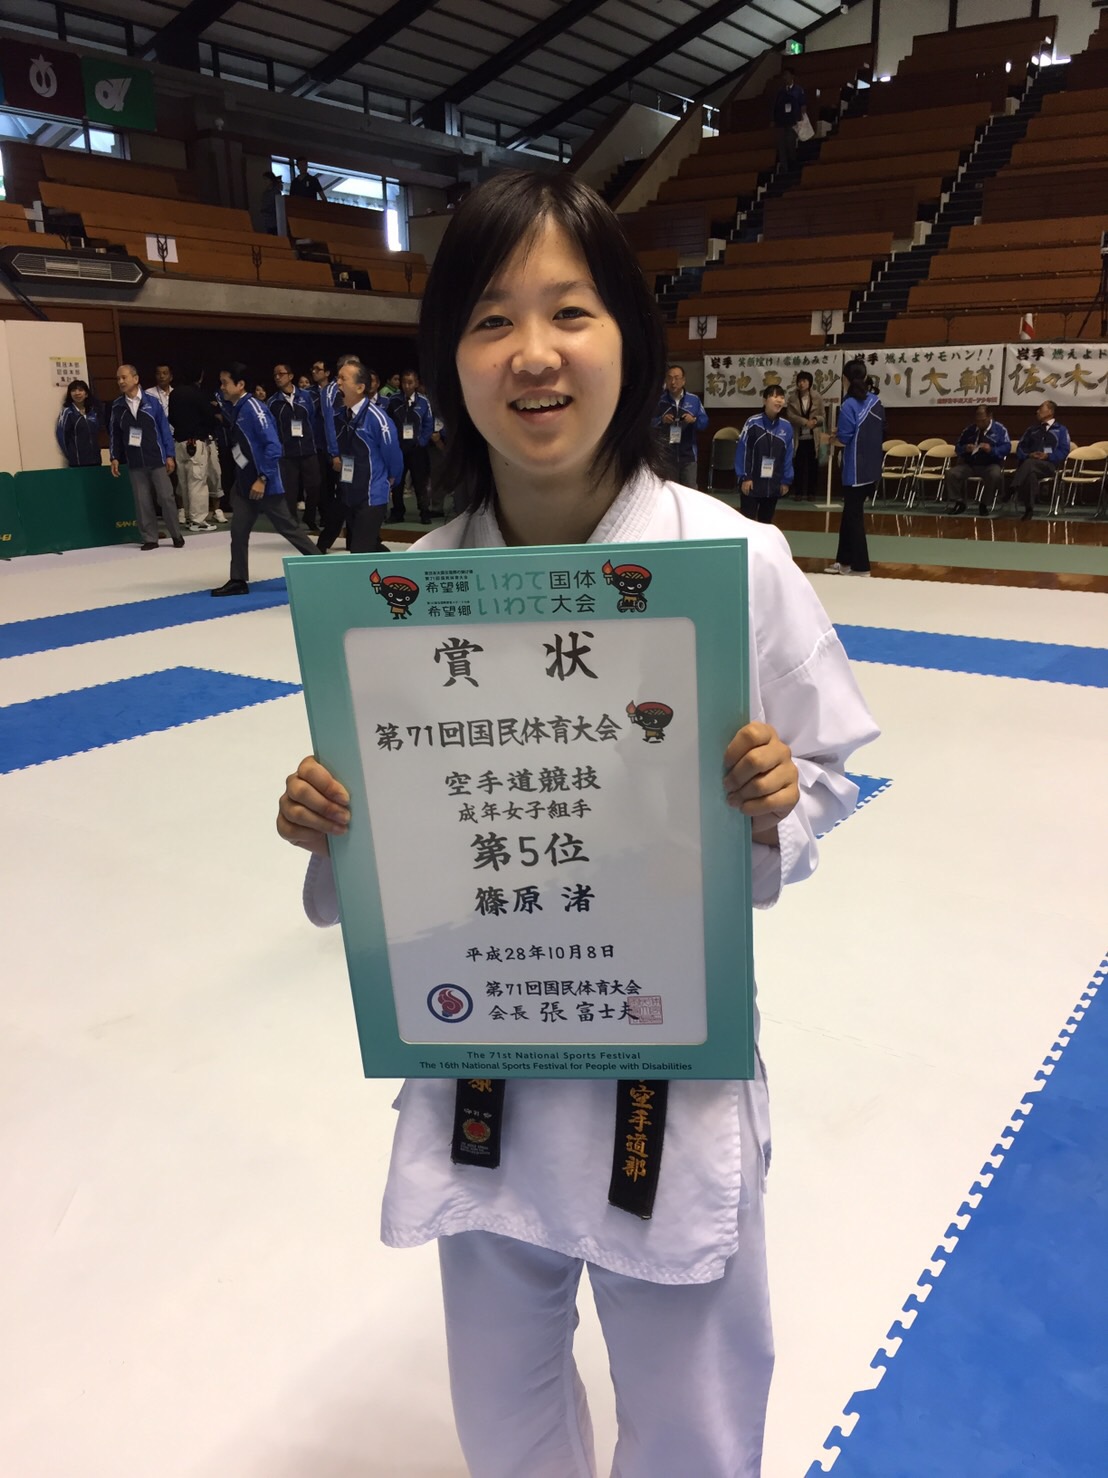 希望郷 いわて国体
希望郷 いわて大会
賞 状
第71回国民体育大会
空手道競技
成年女子組手
第5位
篠原 渚
平成28年10月8日
第71回国民体育大会
会長 張 富士夫
The 71st National Sports Festival
The 16th National Sports Festival for People with Disabilities
空手道部
岩手 笑顔咲け!
菊池
岩手 燃えよサモハン!!
川 大輔
岩手 燃えよド
佐々木